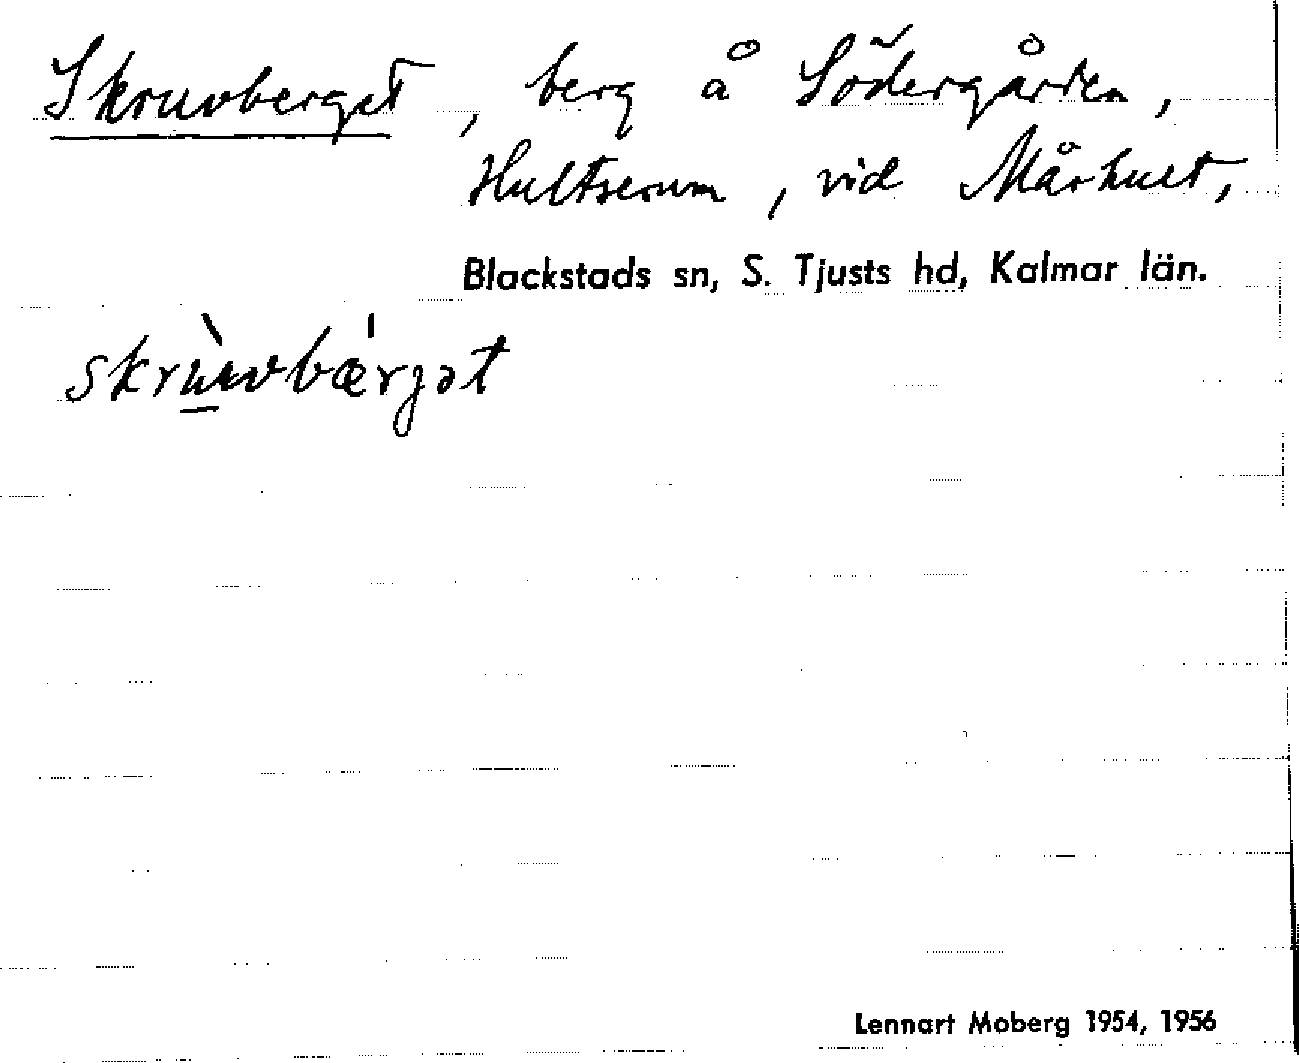 Skruvberget, berg å Södergården,
Hultserum, vid Mårhult,
Blackstads sn, S. Tjusts hd, Kalmar län.
skrùvbǽrgət
Lennart Moberg 1954, 1956